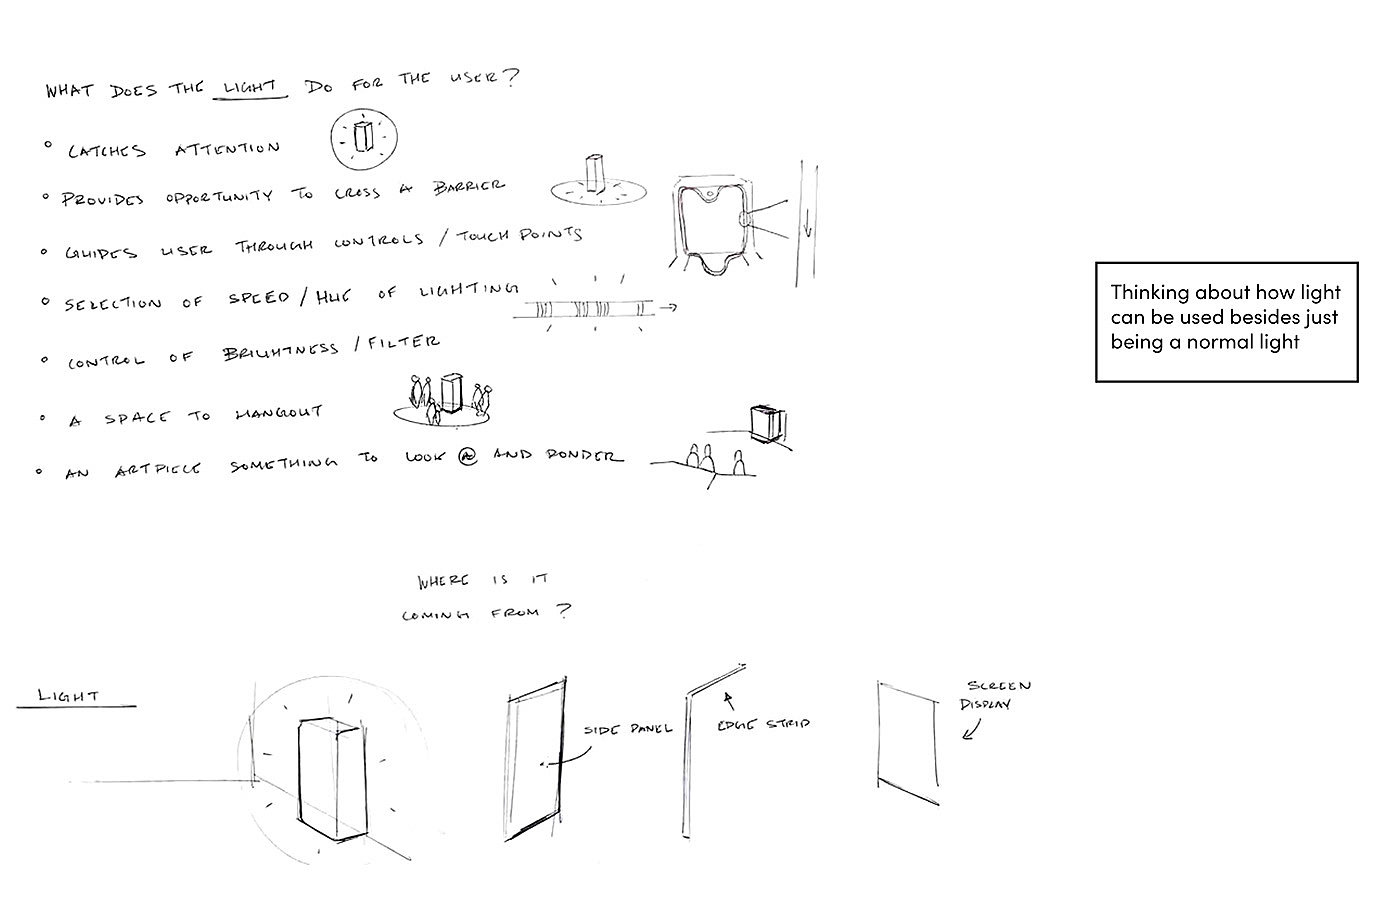 WHAT DOES THE LIGHT DO FOR THE USER?
CATCHES ATTENTION
PROVIDES OPPORTUNITY TO CROSS A BARRIER
GUIDES USER THROUGH CONTROLS / TOUCH POINTS
SELECTION OF SPEED / HUE OF LIGHTING
CONTROL OF BRIGHTNESS / FILTER
A SPACE TO HANGOUT
AN ARTPIECE SOMETHING TO LOOK @ AND PONDER
Thinking about how light
can be used besides just
being a normal light
WHERE IS IT
COMING FROM?
LIGHT
SIDE PANEL
EDGE STRIP
SCREEN
DISPLAY